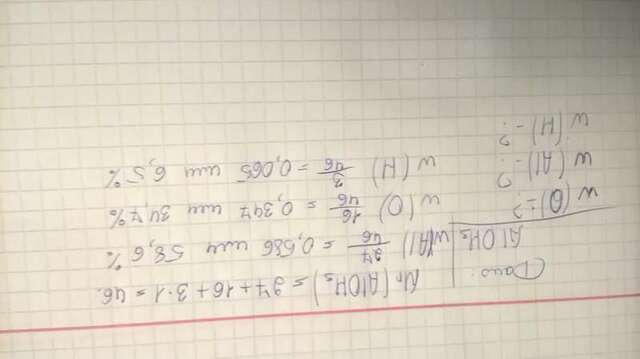 Дано:
AlOH₃
W(O) - ?
W(Al) - ?
W(H) - ?
Mr(AlOH₃) = 27+16+3·1=46.
W(Al) 27/46 = 0,586 или 58,6%
W(O) 16/46 = 0,347 или 34,7%
W(H) 3/46 = 0,065 или 6,5%